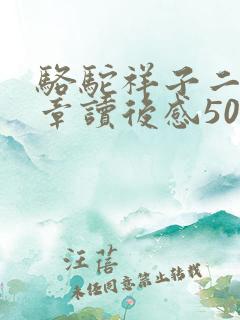 駱駝祥子二
章讀後感50
汪蓓
未經同意禁止轉載